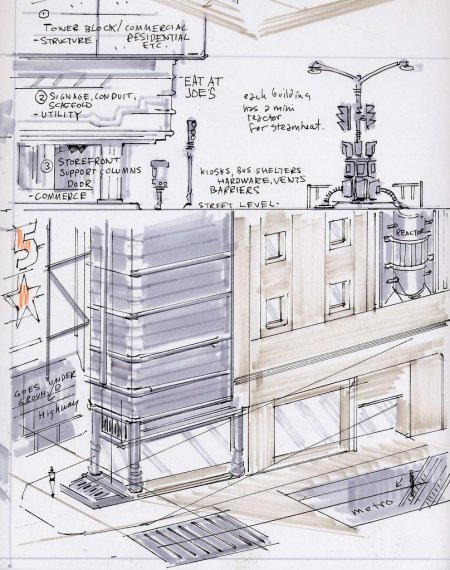 ① TOWER BLOCK/COMMERCIAL
RESIDENTIAL
- STRUCTURE ETC.
② SIGNAGE, CONDUIT,
SCAFFOLD
- UTILITY
"EAT AT
JOE'S
each building
has a mini
reactor
for steamheat.
③ STOREFRONT
SUPPORT COLUMNS
DOOR
- COMMERCE
KIOSKS, BUS SHELTERS
HARDWARE, VENTS
BARRIERS
STREET LEVEL -
5
REACTOR
GOES UNDER
GROUND
Highway
metro